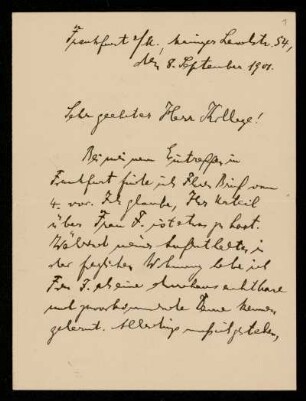 Frankfurt a/M., Mainzer Landstr. 54,
den 8. September 1901.
Sehr geehrter Herr Kollege!
Bei meinem Eintreffen in
Frankfurt finde ich Ihren Brief vom
4. vor. Ich glaube, Ihr Urteil
über Frau F. ist etwas zu hart.
Während meines Aufenthaltes in
der fraglichen Wohnung habe ich
Frau F. als eine durchaus achtbare
und Dame kennen
gelernt. Allerdings muß ich gestehen,